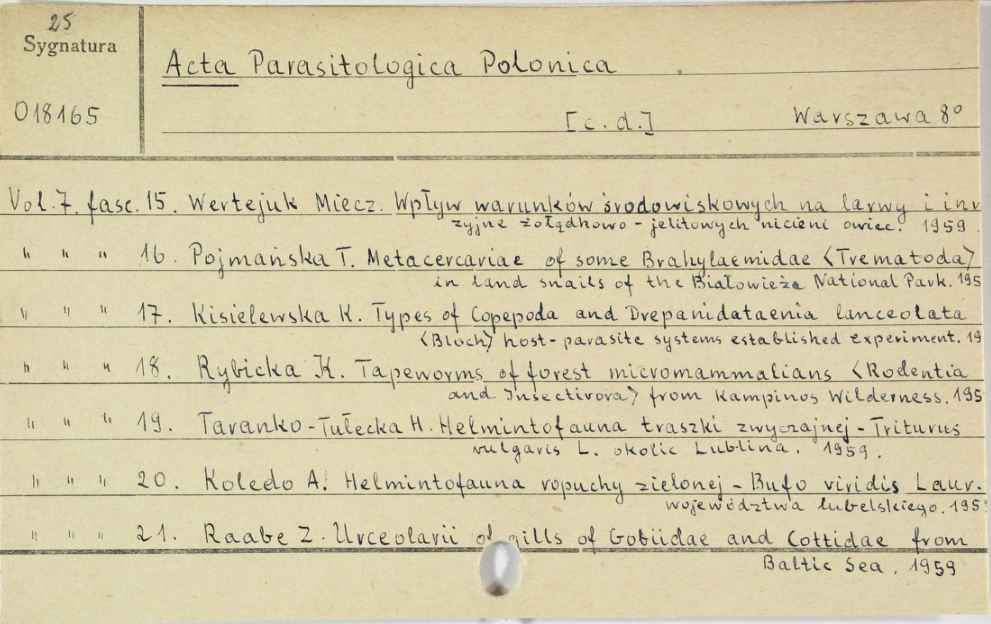 25
Sygnatura
Acta Parasitologica Polonica
018165
[c.d.] Warszawa 8º
Vol. 7. fasc. 15. Wertejuk Miecz. Wpływ warunków środowiskowych na larwy i inw
zyjne żołądkowo-jelitowych nicieni owiec. 1959
" " " 16. Pojmańska T. Metacercariae of some Brahylaemidae <Trematoda>
in land snails of the Białowieża National Park. 195
" " " 17. Kisielewska K. Types of Copepoda and Drepanidataenia lanceolata
<Bloch> host-parasite systems established experiment. 19
" " " 18. Rybicka K. Tapeworms of forest micromammalians <Rodentia
and Insectivora> from Kampinos Wilderness. 195
" " " 19. Taranko-Tułecka H. Helmintofauna traszki zwyczajnej - Triturus
vulgaris L. okolic Lublina. 1959.
" " " 20. Koledo A. Helmintofauna ropuchy zielonej - Bufo viridis Laur.
województwa lubelskiego. 195
" " " 21. Raabe Z. Urceolarii of gills of Gobiidae and Cottidae from
Baltic Sea. 1959